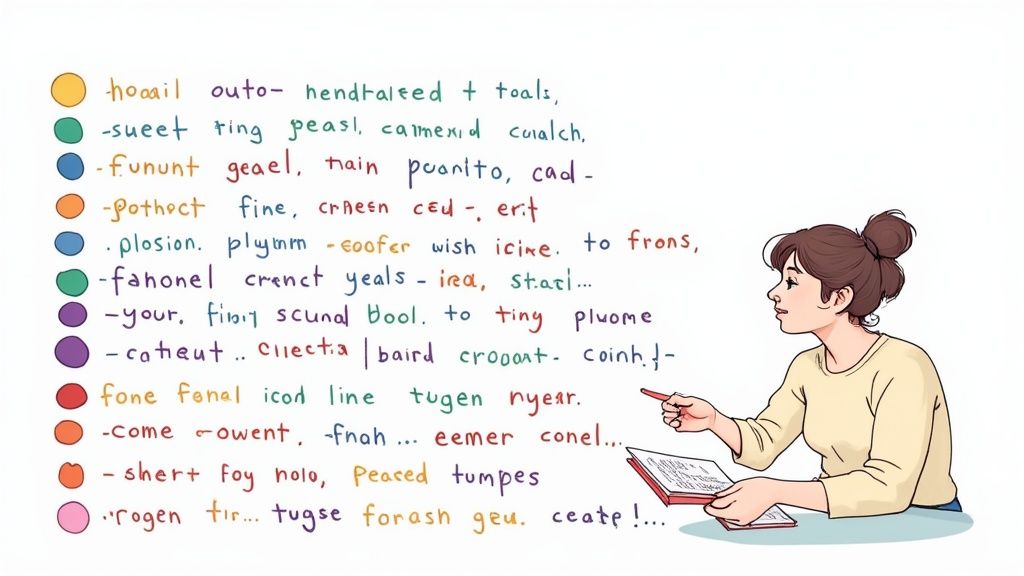 -hoaail outo- hendtaleed + toals,
-sueet ring peasl. camexid cualch,
-fununt geael, tain puanito, cad -
-pothoct fine, crheen ced -, erit
. plosion. plymm -eoofer wish icine. to frons,
-fahonel crenct yeals - irea, Stacl...
-your, scunal bool. to tiny pluome
-catheut .. baird crooart- coinh
fone fonal icod line tugen nyear.
-come -owent, -fnah ... eemer conel...
- shert foy nolo, Peaced tumpes
rogen tir... tugse forash geu. ceate !...